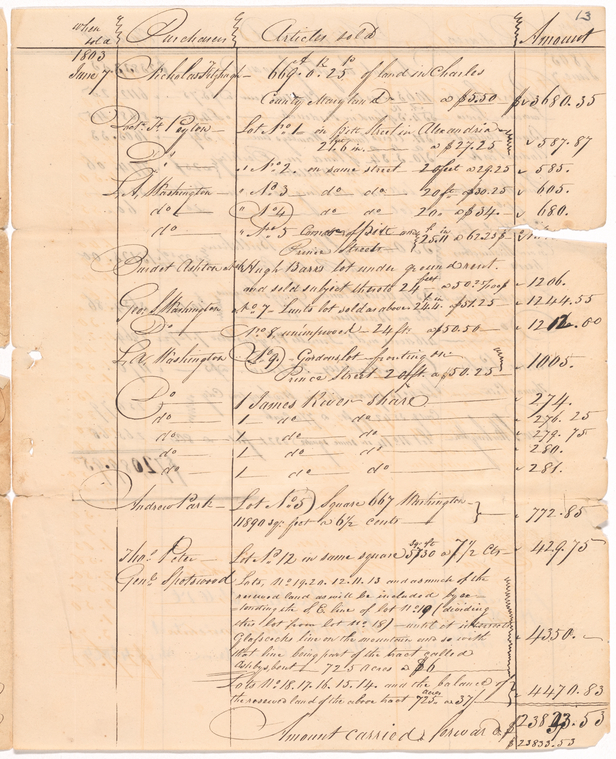 13
When sold Purchasers Articles sold Amount
1803
June 7 Nicholas Fitzhugh 669 a 0 r 25 ps of land in Charles
County Maryland a $5.50 $ 3680.35
Docr. Fr. Peyton Lot No. 1 on pitt street in Alexandria
21 ft 6 in. a $27.25 587.87
Do. " No. 2. on same street 20 feet a 29.25 585.
L. A. Washington " No. 3 do do 20 ft. a $30.25 605.
do " No. 4 do do 20. a $34. 680.
do " No. 5 Corner of Pitt and 25 ft 11 in a 62.25
Prince Streets
Burdet Ashton Hugh Bares lot under ground rent
and sold subject thereto 24 feet a 50.25 1206.
Geo. S. Washington No. 7 Lunts lot sold as above 24.4 ft in a $51.25 1244.55
Do. No. 8 unimproved 24 ft a $50.50 1212.00
L. A. Washington No. 9 Gordons lot fronting on
Prince Street 20 ft. a $50.25 1005.
Do 1 James River share 274.
do 1 do do 276.25
do 1 do do 279.75
do 1 do do 280.
do 1 do do 281.
Andrew Park Lot No. 5 Square 667 Washington
11890 sqr. feet a 6½ cents 772.85
Thos. Peter Lot No. 12 in same square 5730 sq. ft a 7½ Cts 429.75
Genl. Spotswood Lots, No. 19. 20. 12. 11. 13 and as much of the
reserved land as will be included by ex-
tending the S.E. line of lot No. 19 (dividing
this lot from lot No. 18) until it intersects
Glasscocks line on the mountain and so with
that line being part of the tract called
Ashbys bent 725 acres a $6 4350.
Lots No. 18. 17. 16. 15. 14. and the balance of
the reserved land of the above tract 725 acres 4470.83
Amount carried forward $ 23833.53
$ 23833.53